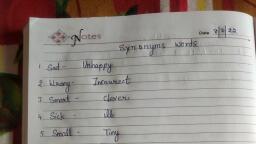 Notes
Date 7/2/22
Synonyms words
1. Sad - Unhappy
2. Wrong - Incorrect
3. Smart - Clever
4. Sick - ill
5. Small - Tiny